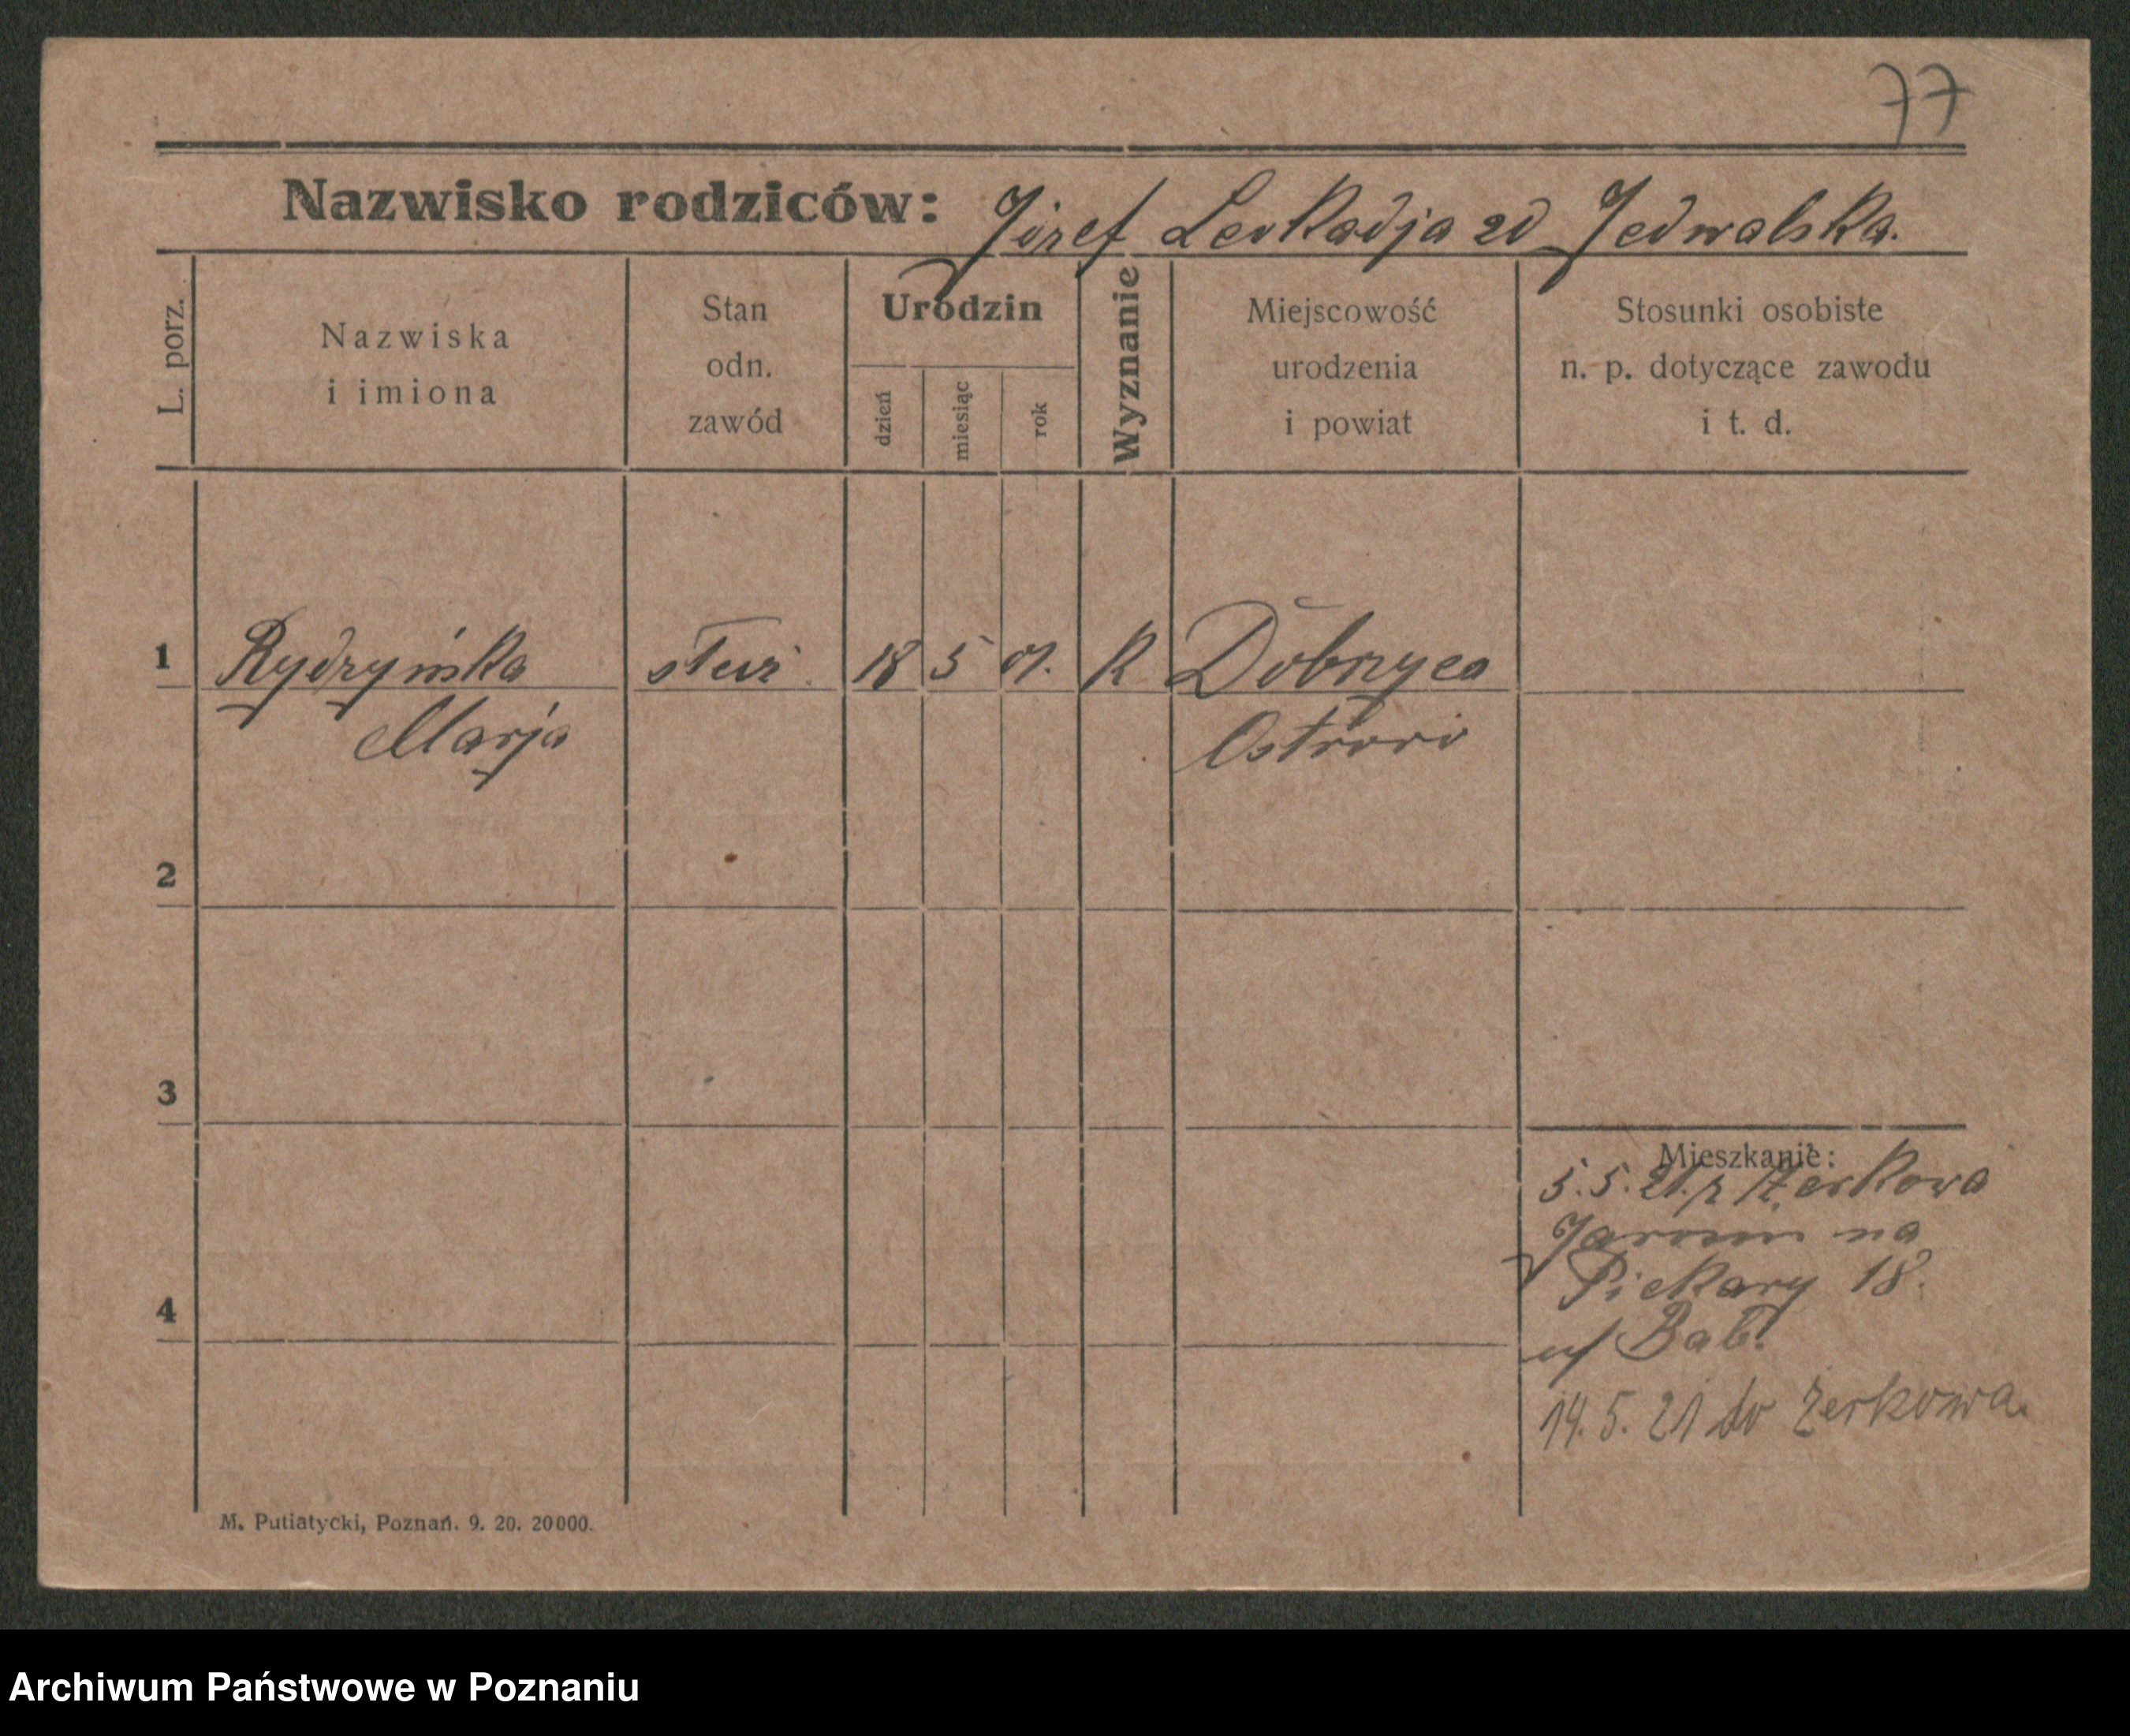 77
Nazwisko rodziców: Józef Leokadja zd Jedwalska.
L. porz.
Nazwiska
i imiona
Stan
odn.
zawód
Urodzin
dzień
miesiąc
rok
Wyznanie
Miejscowość
urodzenia
i powiat
Stosunki osobiste
n. p. dotyczące zawodu
i t. d.
1 Rydzyńska służ. 18 5 01. K Dobrzyca
Marja Ostrowo
2
3
Mieszkanie:
5.5.21. z Żerkowa
na
Piekary 18.
4
Bab.
14.5.21 do Żerkowa.
M. Putiatycki, Poznań. 9. 20. 20000.
Archiwum Państwowe w Poznaniu